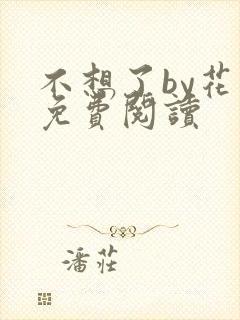 不想了by花
免費閱讀
潘莊